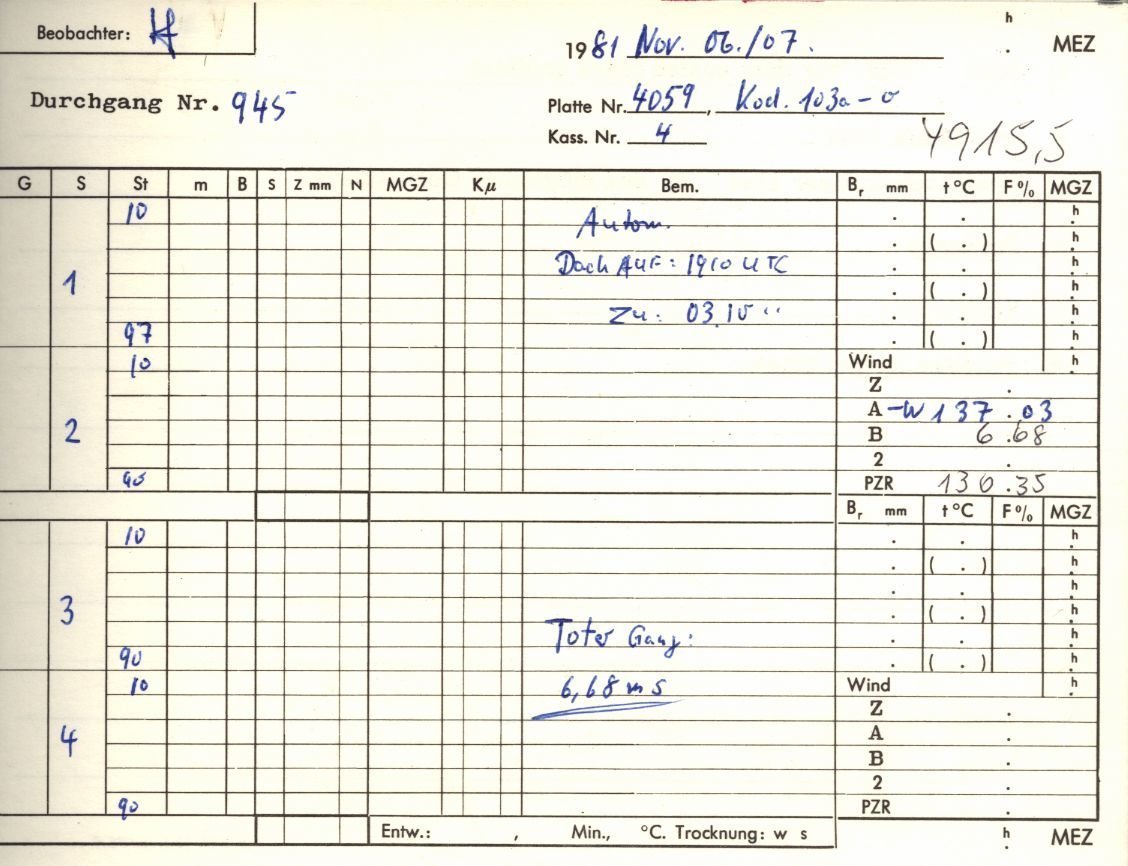 Beobachter: H
h
1981 Nov. 06./07. . MEZ
Durchgang Nr. 945
Platte Nr. 4059, Kod. 103a-o
Kass. Nr. 4
4915,5
G S St m B S Z mm N MGZ Kμ Bem. Br mm t°C F% MGZ
10 Autom. . . h
. ( . ) h
1 Dach AUF: 1910 UTC . . h
. ( . ) h
Zu: 03.10 " . . h
97 . ( . ) h
10 Wind h
Z .
A -W 137.03
2 B 6.68
2 .
90 PZR 130.35
Br mm t°C F% MGZ
10 . . h
. ( . ) h
. . h
3 . ( . ) h
Toter Gang: . . h
90 . ( . ) h
10 6,68 ms Wind h
Z .
4 A .
B .
2 .
90 PZR .
Entw.: , Min., °C. Trocknung: w s h . MEZ